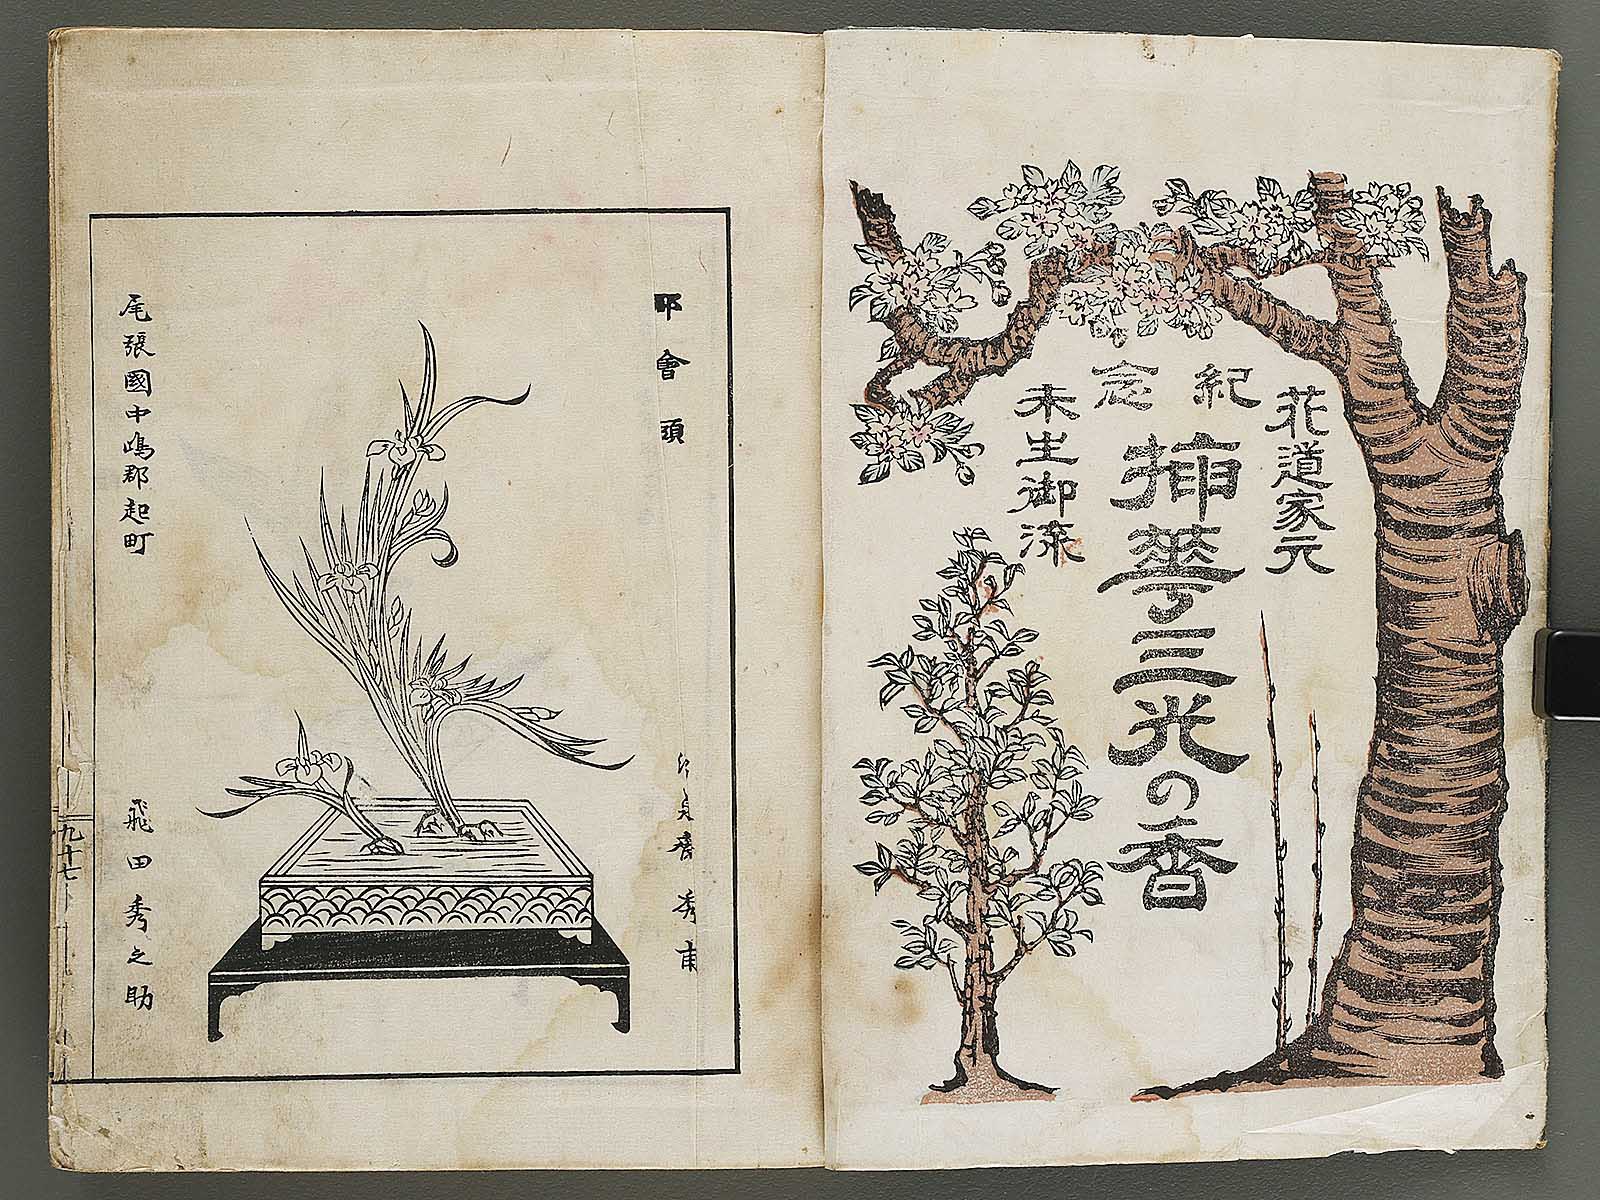 花道家元
紀念
挿華三光の香
未生御流
會頭
齋秀甫
尾張國中嶋郡起町
飛田秀之助
九十七